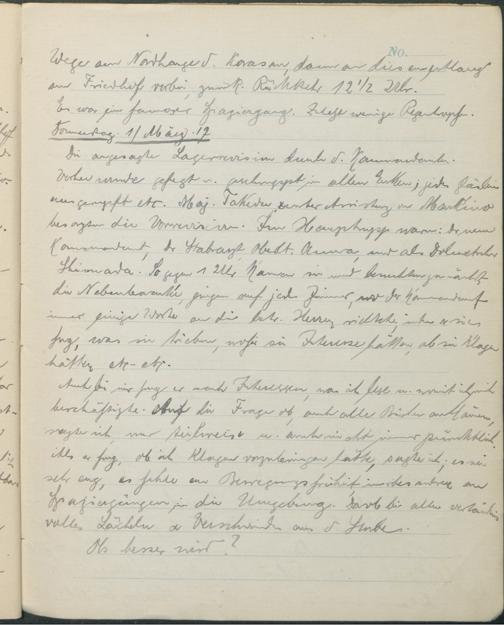 No.
Wege am Nordhange d. Korasan, dann an dies entlang
am Friedhof vorbei, zurück. Rückkehr 12 1/2 Uhr.
Es war ein famoser Spaziergang. Zuletzt wenige Regentropfen.
Donnerstag 1/ März 17
Die angesagte Lagerrevision durch d. Kommandanten.
Vorher wurde gefegt u. in allen Ecken, jedes
etc. Maj. Takeda, unter Assistenz von Makino
besorgten die Vorrevision. Im Haupttrupp waren: der neue
Kommandant, Dr Stabsarzt, Oblt. und als Dolmetscher
Shimada. So gegen 1 Uhr kamen sie und zunächst
die Nebenbaracke, gingen auf jedes Zimmer, wo der Kommandant
immer einige Worte an die betr. Herren richtete, indem er sie
frug, was sie trieben, wofür sie Interesse hätten, ob sie Klagen
hätten etc. etc.
Auch bei mir frug er nach Interessen, was ich lese u. womit ich mich
beschäftigte. Auf die Frage ob, auch alle Bücher ankämen
sagte ich, nur teilweise u. auch nicht immer pünktlich.
Als er frug, ob ich Klagen vorzubringen hätte, sagte ich, es sei
sehr eng, es fehle an Bewegungsfreiheit insbesondere an
Spaziergängen in die Umgebung. Darob bei allen verständnis
volles Lächeln u. Verschwinden aus d. Stube.
Ob besser wird?